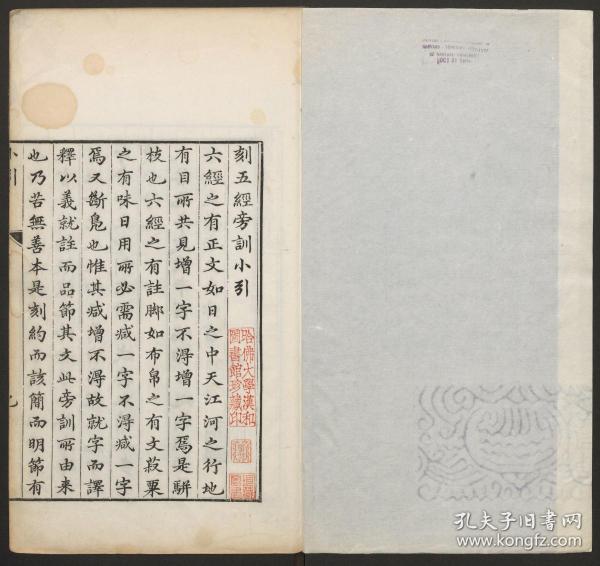 刻五經旁訓小引
六經之有正文如日之中天江河之行地
有目所共見增一字不得增一字焉是駢
枝也六經之有註脚如布帛之有文菽粟
之有味日用所必需减一字不得减一字
焉又斷鳧也惟其减增不得故就字而譯
釋以義就註而品節其文此旁訓所由来
也乃若無善本是刻約而該簡而明節有
小引
哈佛大學漢和
圖書館珍藏印
孔夫子旧書网
www.kongfz.com